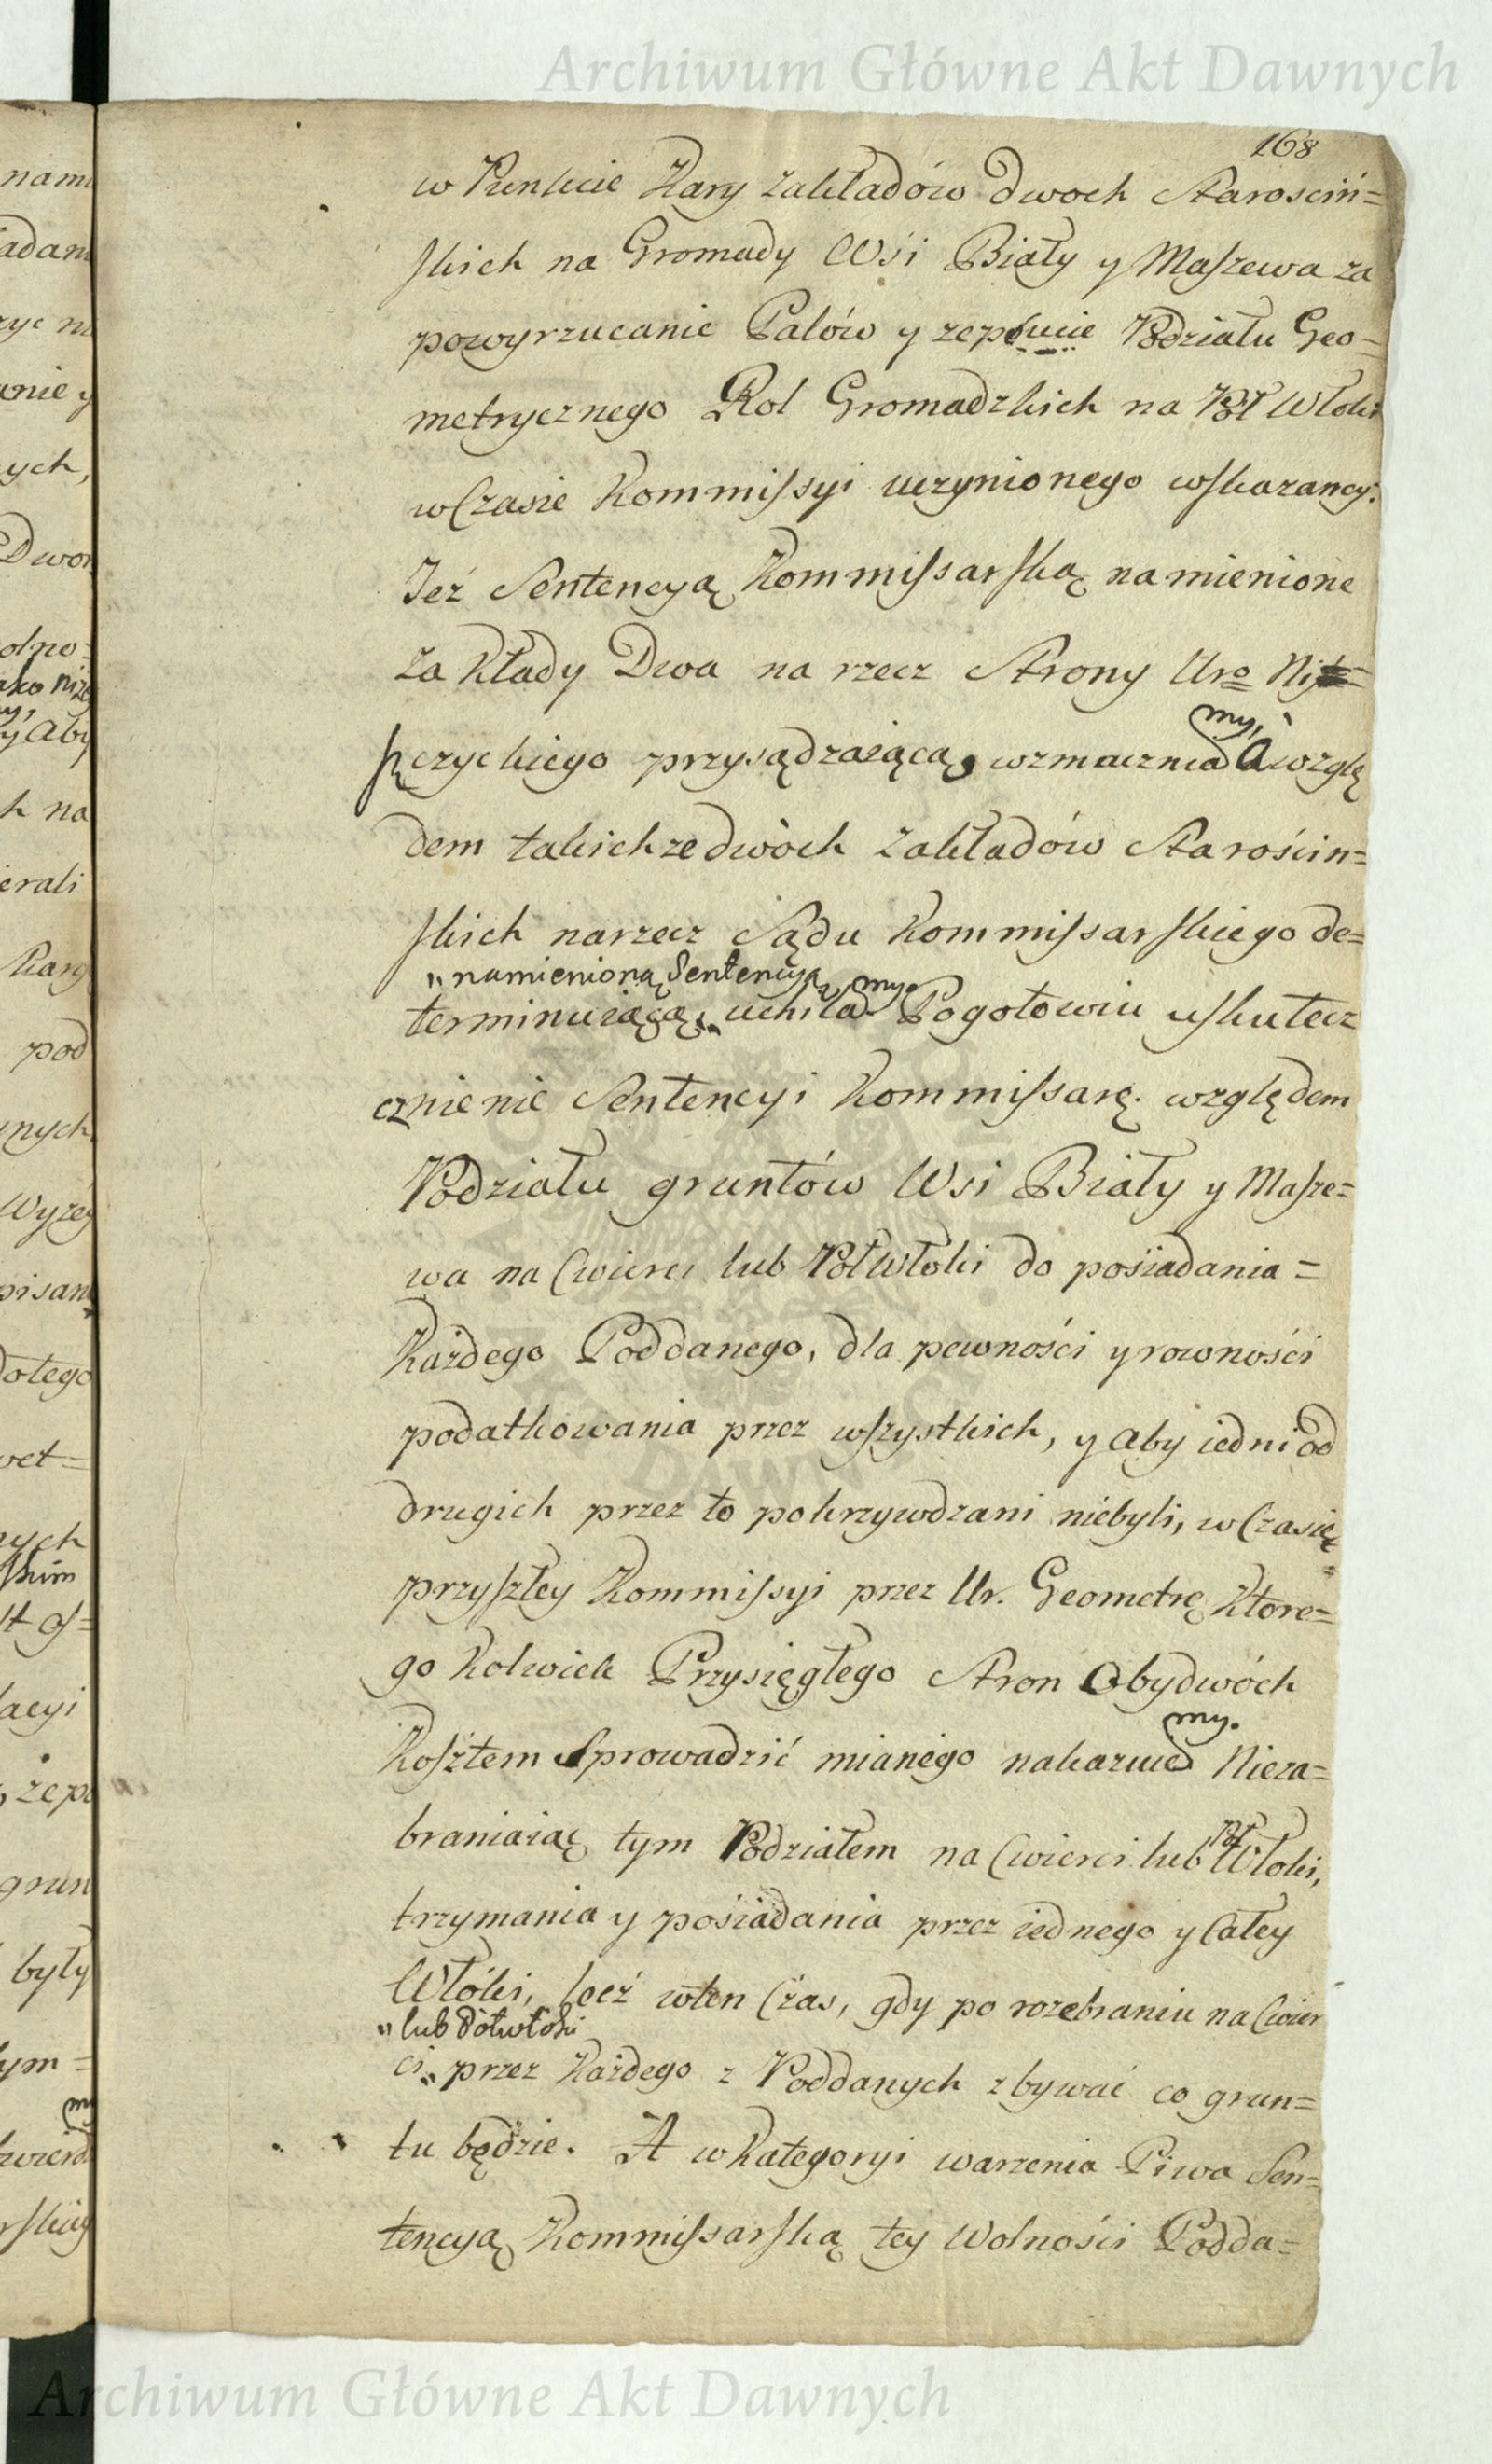 Archiwum Główne Akt Dawnych
168
w Punkcie Kary Zakładów Dwoch Starosciń=
skich na Gromady Wśi Biały y Maszewa za
powyrzucanie Palów y zepsucie Podziału Geo=
metrycznego Rol Gromadzkich na Poł Włoki
w Czasie Kommissyi uczynionego wskazaney.
Też Sentencyą Kommissarską namienione
Zakłady Dwa na rzecz Strony Uro
szczyckiego przysądzaiącą, wzmacniamy, a wzglę
dem takichze dwóch Zakładów Starościn=
skich na rzecz Sądu Kommissarskiego de=
„namienioną Sentencyą
terminuiącą, uchilamy. Pogotowiu uskutecz
cznienie Sentencyi Kommissarę. względem
Podziału gruntów Wsi Biały y Masze=
wa na Cwierci lub Poł Włoki do pośiadania =
Każdego Poddanego, dla pewności y rowności
podatkowania przez wszystkich, y aby iedni od
drugich przez to pokrzywdzani niebyli, w Czasie
przyszłey Kommissyi przez Ur. Geometrę ktore=
go kolwiek Przysięgłego Stron Obydwóch
Kosztem Sprowadzić mianego nakazuiemy. Nieza=
braniaiąc tym Podziałem na Cwierci lub Poł Włoki,
trzymania y pośiadania przez iednego y Całey
Włóki, lecż wten Czas, gdy po rozebraniu na Cwier
„lub Półwłoki
ci„ przez Każdego z Poddanych zbywać co grun=
tu będzie. A w Kategoryi warzenia Piwa Sen=
tencyą Kommissarską tey Wolności Podda=
Archiwum Główne Akt Dawnych